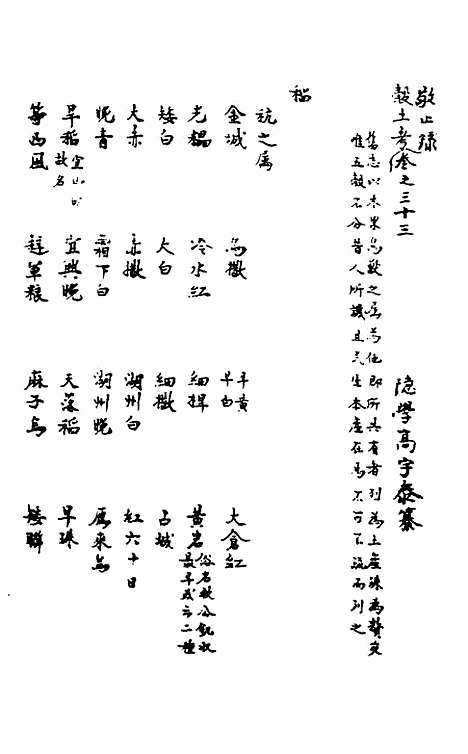 敬止録
穀土考卷之三十三
隐學高宇泰纂
舊志以木果鳥獸之屬爲他卽所共有者列為土產殊為贅矣
惟五穀不分昔人所譏且民生本虛在焉不可不流而列之
稻
秔之属
金城 烏撒 早黄早白 大倉紅
光䅟 冷水紅 細稈 黄岩俗名救公飢収最早或云二種
矮白 大白 細撒 占城
大赤 赤撒 湖州白 紅六十日
晚青 霜下白 湖州晚 雁來烏
早稻宜山田故名 宜興晚 天落稻 早珠
等西風 軍粮 麻子烏 矮